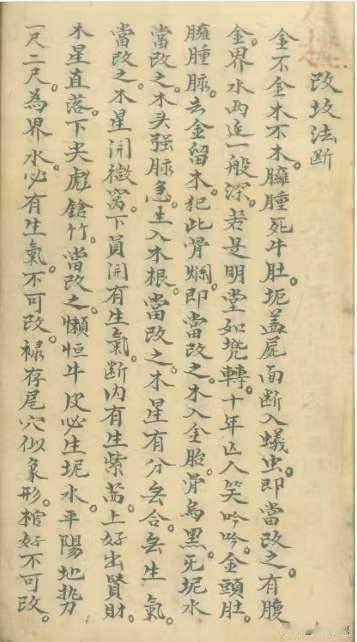 改坟法断
金不金木不木。臃腫死牛肚。坭蓋屍面断入蟻虫即當改之。有腹
金界水両边一般深。若是明堂如凳轉。十年亡人笑吟吟。金頭肚
臃腫脉。去金留木犯此骨爛。即當改之。木入金胎。骨烏黑。无坭水
當改之。木头强脉急。生入木根。當改之。木星有分無合無生氣。
當改之。木星開微窝。下員開有生氣。断内有生紫蒿。上好出賢財。
木星直落。下尖彪鎗竹。當改之。懶恒牛皮必生坭水。平陽地挑
一尺二尺。為界水。必有生氣。不可改。禄存尾穴似象形。棺好不可改。